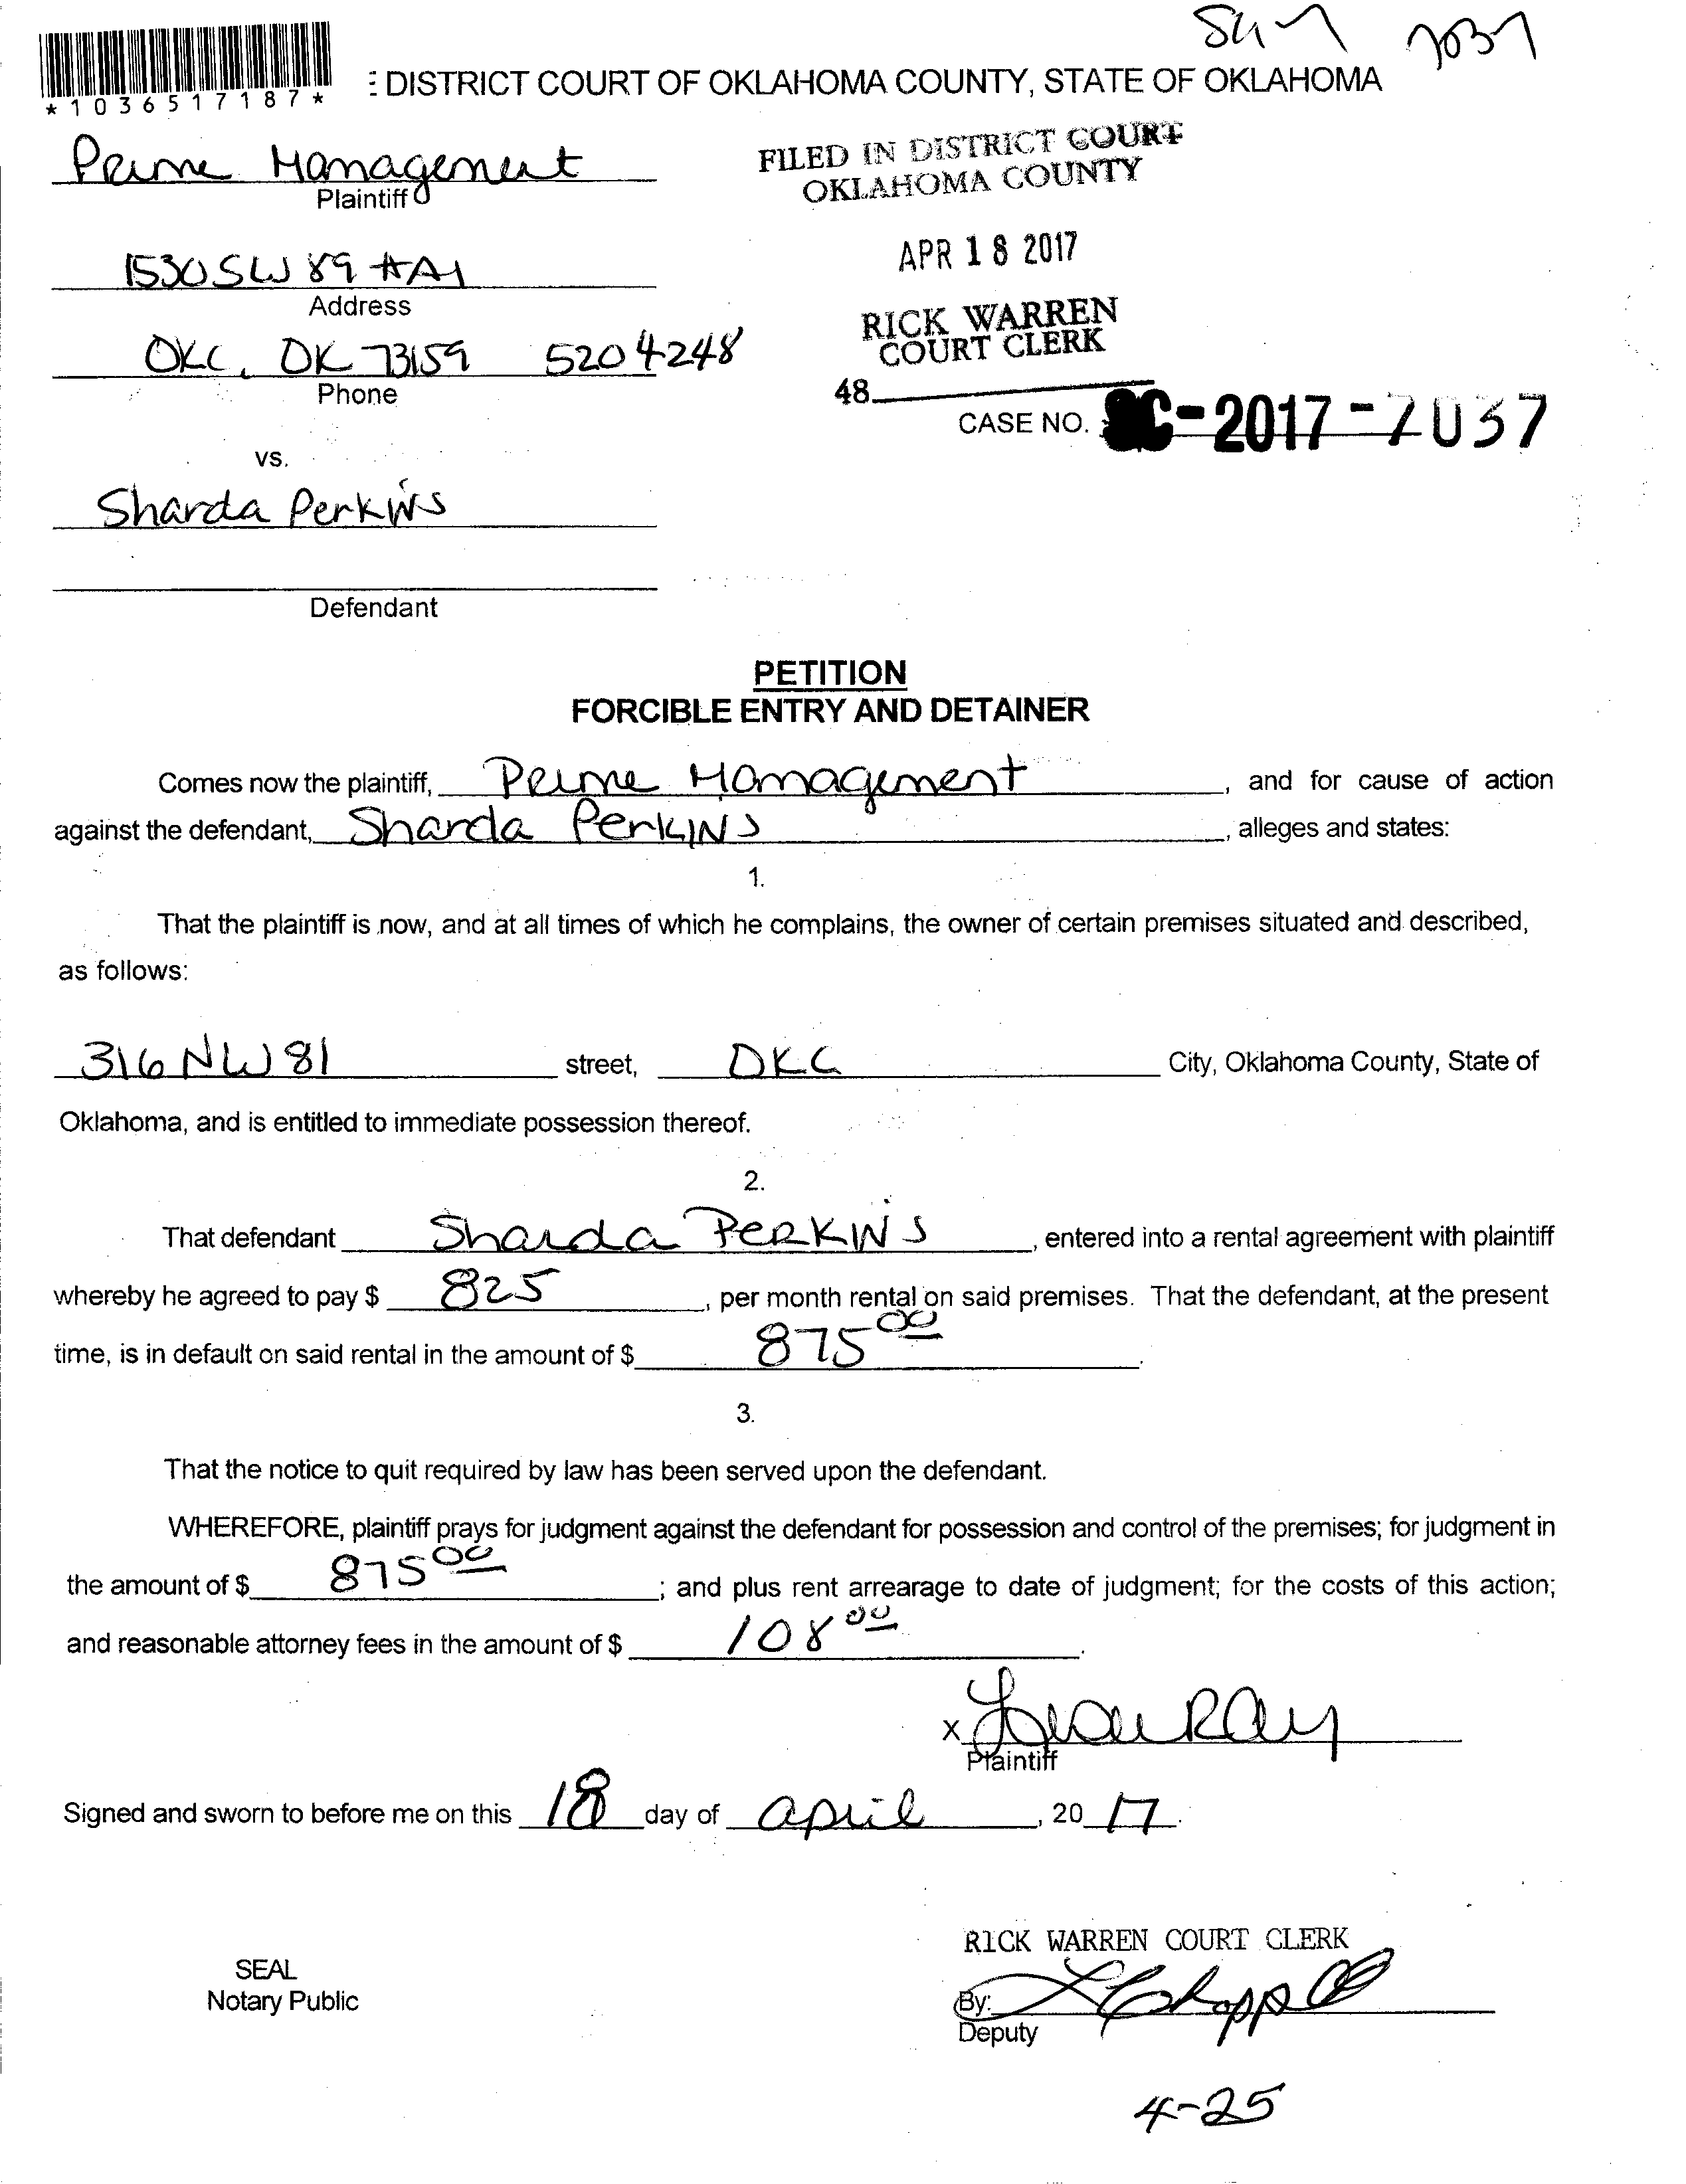 7037
*1036517187*
DISTRICT COURT OF OKLAHOMA COUNTY, STATE OF OKLAHOMA
Prime Management
Plaintiff
FILED IN DISTRICT COURT
OKLAHOMA COUNTY
1530 SW 89 #A1
Address
APR 18 2017
OKC, OK 73159 520 4248
Phone
RICK WARREN
COURT CLERK
48
CASE NO. SC-2017-7037
vs.
Sharda Perkins
Defendant
PETITION
FORCIBLE ENTRY AND DETAINER
Comes now the plaintiff, Prime Management, and for cause of action
against the defendant, Sharda Perkins, alleges and states:
1.
That the plaintiff is now, and at all times of which he complains, the owner of certain premises situated and described,
as follows:
316 NW 81 street, OKC City, Oklahoma County, State of
Oklahoma, and is entitled to immediate possession thereof.
2.
That defendant Sharda Perkins, entered into a rental agreement with plaintiff
whereby he agreed to pay $ 825, per month rental on said premises. That the defendant, at the present
time, is in default on said rental in the amount of $ 875 00.
3.
That the notice to quit required by law has been served upon the defendant.
WHEREFORE, plaintiff prays for judgment against the defendant for possession and control of the premises; for judgment in
the amount of $ 875 00; and plus rent arrearage to date of judgment; for the costs of this action;
and reasonable attorney fees in the amount of $ 108 00.
x
Plaintiff
Signed and sworn to before me on this 18 day of April, 20 17.
RICK WARREN COURT CLERK
SEAL
Notary Public
By:
Deputy
4-25